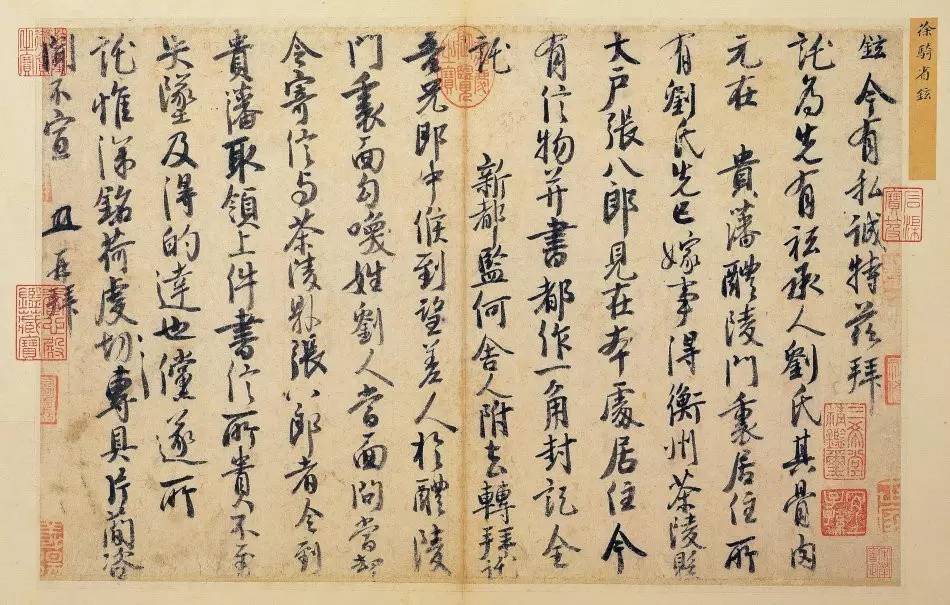 徐騎省鉉
鉉今有私誠特茲拜
託為先有祖承人劉氏其骨肉
元在 貴藩醴陵門裏居住所
有劉氏先已嫁事得衡州茶陵縣
大戶張八郎見在本處居住今
有信物并書都作一角封記全
託 新都監何舍人附去轉拜託
吾兄郎中候到望差人於醴陵
門裏面勾喚姓劉人當面問當却
令寄信与茶陵縣張八郎者令到
貴藩取領上件書信所貴不至
失墜及得的達也儻遂所
託惟深銘荷虔切專具片簡咨
聞不宣 再拜
三希堂精鑑璽
宜子孫